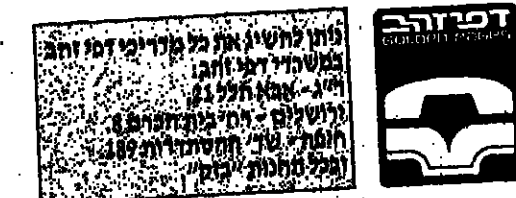 ניתן להשיג את כל מדריכי דפי זהב
במשרדי דפי זהב:
ר"ג - אבא הלל 11,
ירושלים - רח' בית הכרם 8,
חיפה - שד' ההסתדרות 189,
ובכל חנויות "בזק"
דפי זהב
GOLDEN PAGES